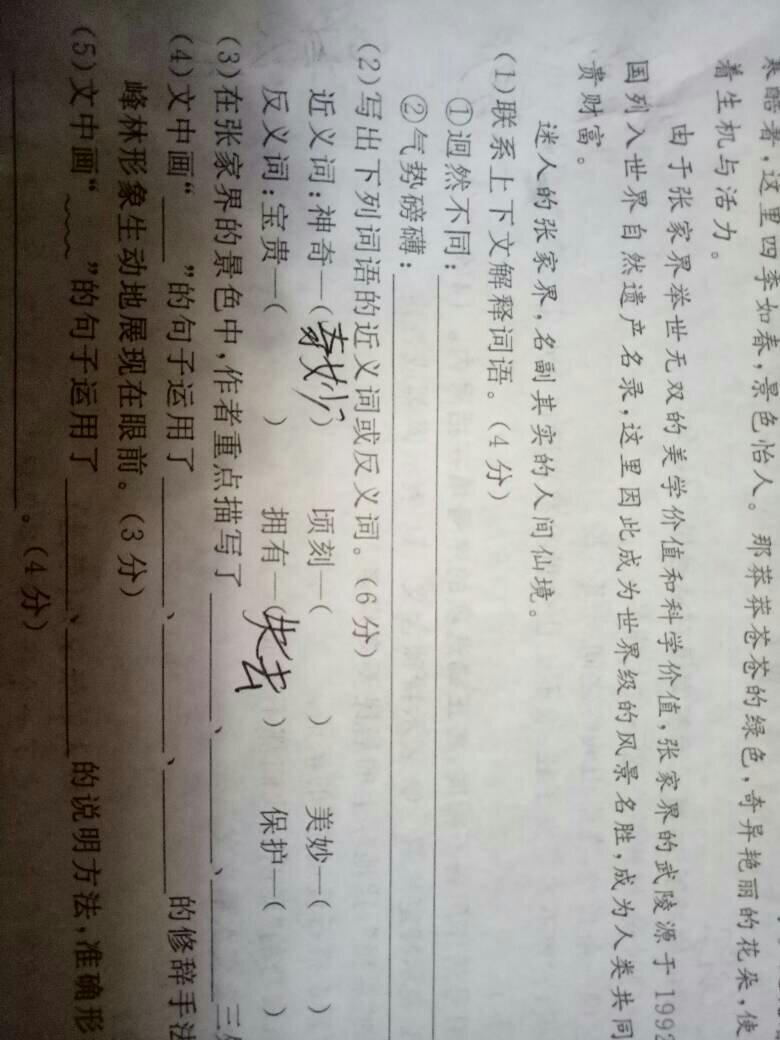 寒酷暑，这里四季如春，景色怡人。那莽莽苍苍的绿色，奇异艳丽的花朵，使
着生机与活力。
由于张家界举世无双的美学价值和科学价值，张家界的武陵源于1992
国列入世界自然遗产名录，这里因此成为世界级的风景名胜，成为人类共同
贵财富。
迷人的张家界，名副其实的人间仙境。
(1)联系上下文解释词语。(4分)
①迥然不同：
②气势磅礴：
(2)写出下列词语的近义词或反义词。(6分)
近义词：神奇—(奇妙) 顷刻—( ) 美妙—( )
反义词：宝贵—( ) 拥有—(失去) 保护—( )
(3)在张家界的景色中，作者重点描写了 、 、 三
(4)文中画“ ”的句子运用了 、 、 的修辞手法
峰林形象生动地展现在眼前。(3分)
(5)文中画“ ”的句子运用了 、 的说明方法，准确形
。(4分)